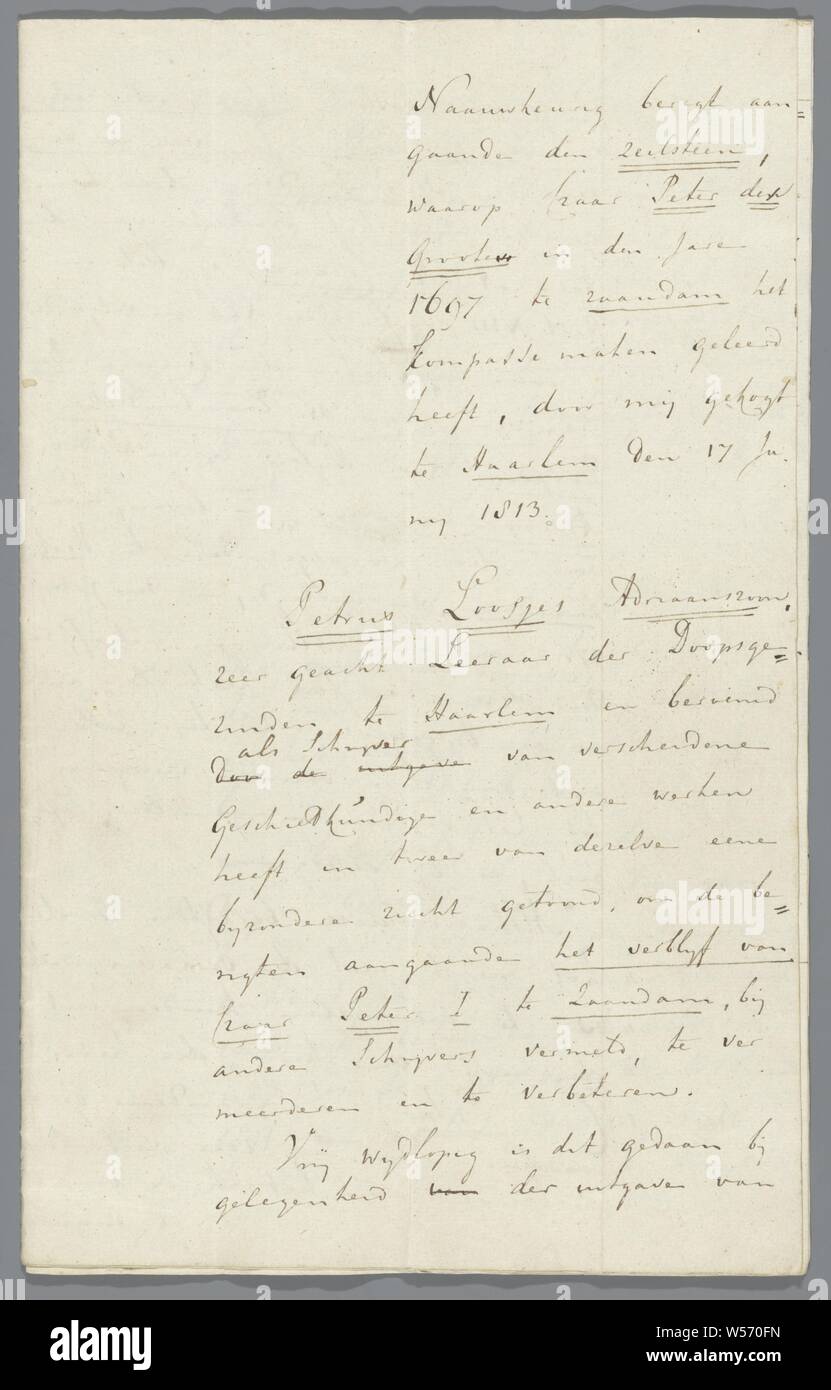 Naauwkeurig berigt aan=
gaande den zeilsteen,
waarop Czaar Peter den
Grooten in den Jare
1697 te zaandam het
kompasse maken geleerd
heeft, door mij gekogt
te Haarlem den 17 Ju-
ny 1813.
Petrus Loosjes Adriaanszoon,
zeer geacht Leeraar der Doopsge=
zinden te Haarlem en beroemd
als Schryver
door de uitgave van verscheidene
Geschiedkundige en andere werken
heeft in twee van dezelve eene
byzondere zucht getoond, om de be=
rigten aangaande het verblyf van
Czaar Peter I te Zaandam, bij
andere Schryvers vermeld, te ver
meerderen en te verbeteren.
Vrij wydlopig is dit gedaan bij
gelegenheid van der uitgaven van
alamy
alamy
alamy
alamy
W570FN
www.alamy.com